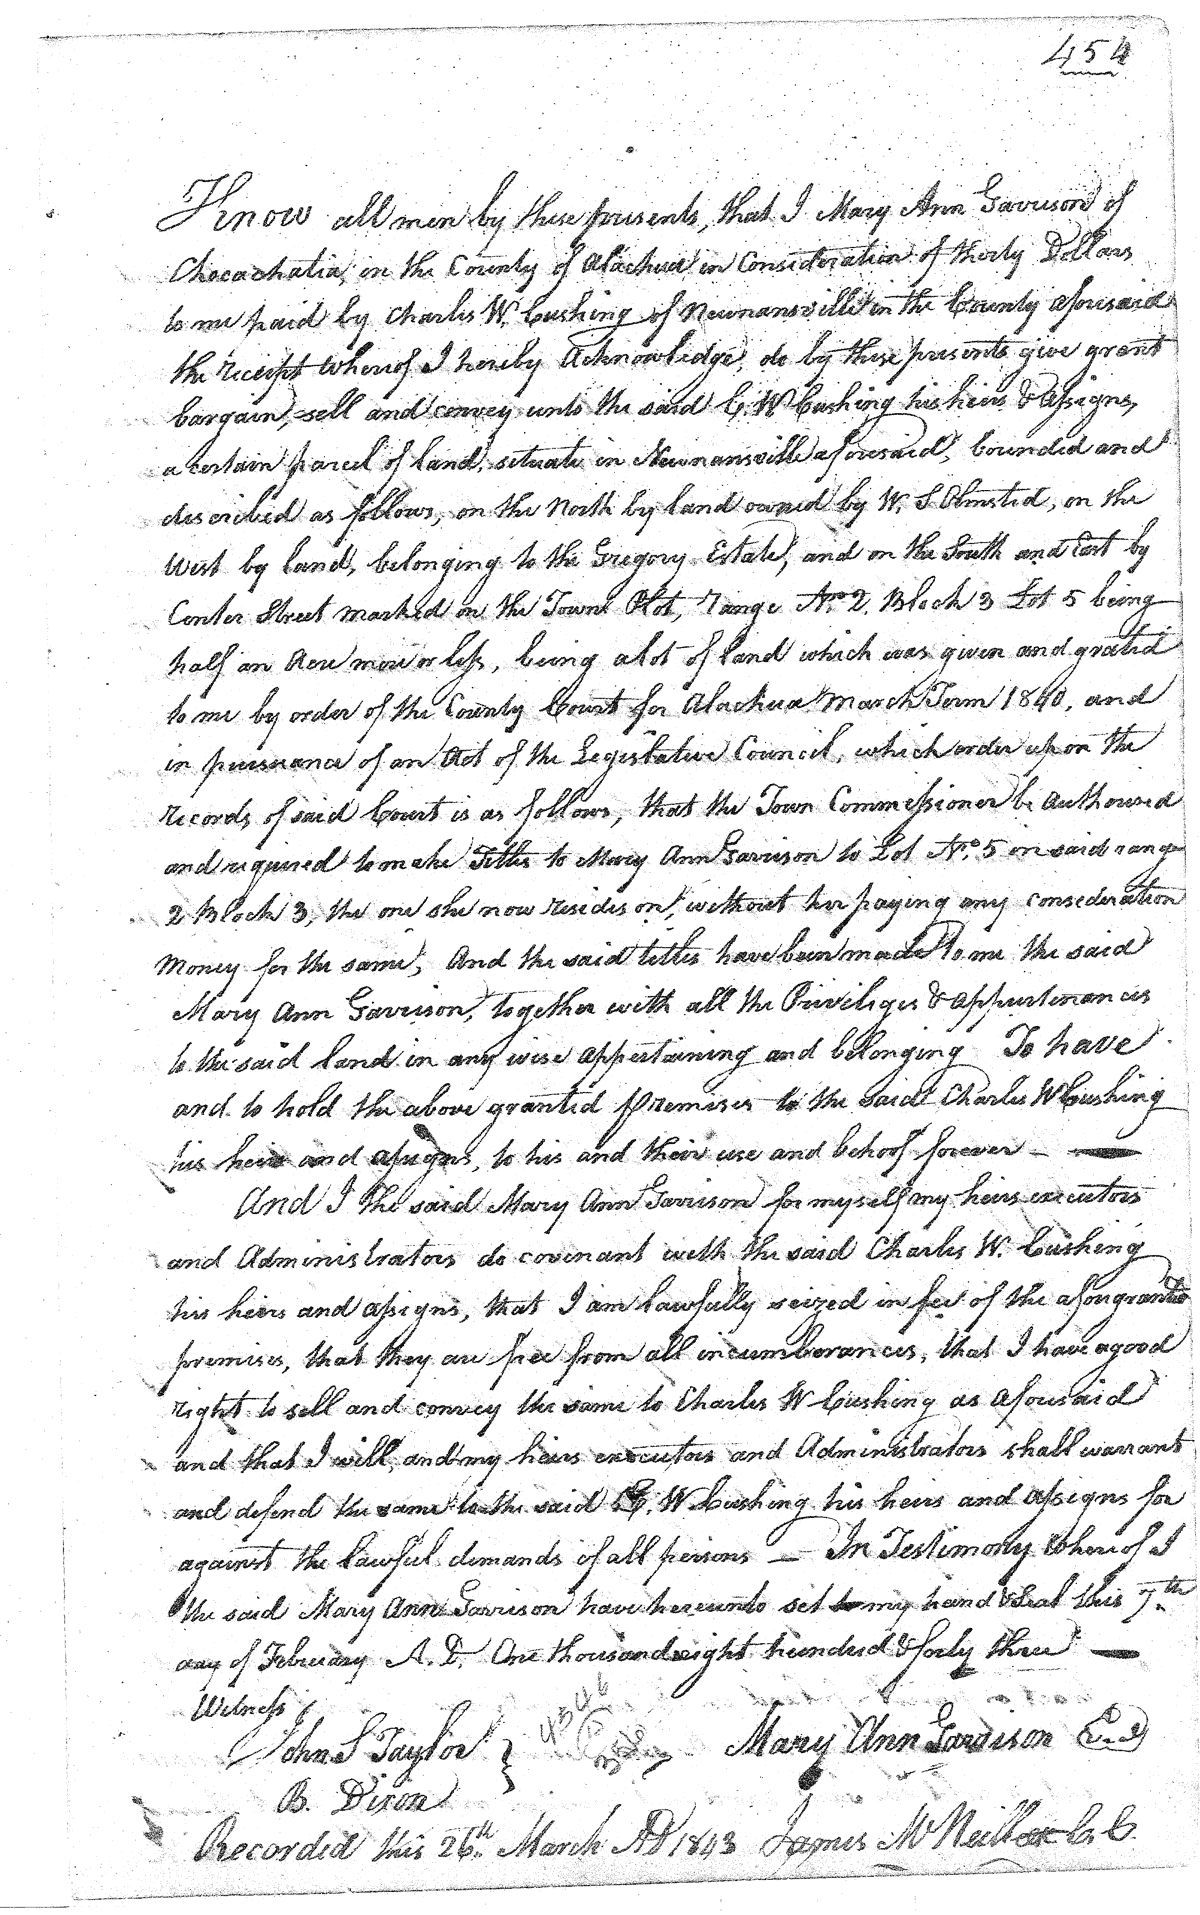 454
Know all men by these presents, that I Mary Ann Garrison of
Chocachatia, in the County of Alachua in Consideration of thirty Dollars
to me paid by Charles W. Cushing of Newnansville in the County aforesaid
the receipt whereof I hereby Acknowledge, do by these presents give grant
bargain, sell and convey unto the said C. W Cushing his heirs & Assigns,
a certain parcel of land, situate in Newnansville aforesaid, bounded and
described as follows, on the North by land owned by W. S Olmsted, on the
West by land, belonging to the Gregory Estate, and on the South and East by
Center Street marked on the Town Plot, range No 2, Block 3 Lot 5 being
half an Acre more or less, being a lot of land which was given and grated
to me by order of the County Court for Alachua March Term 1840, and
in pursuance of an Act of the Legislative Council, which order upon the
records of said Court is as follows, that the Town Commissioner be Authorised
and required to make Titles to Mary Ann Garrison to Lot No. 5 in said range
2 Block 3, the one she now resides on, without her paying any consideration
Money for the same, And the said titles have been made to me the said
Mary Ann Garrison, together with all the Privileges & appurtenances
to the said land in any wise appertaining and belonging To have
and to hold the above granted premises to the said Charles W Cushing
his heirs and assigns, to his and their use and behoof forever —
And I the said Mary Ann Garrison for myself my heirs executors
and Administrators do covenant with the said Charles W. Cushing
his heirs and assigns, that I am lawfully seized in fee of the aforegranted
premises, that they are free from all incumberances, that I have a good
right to sell and convey the same to Charles W Cushing as aforesaid
and that I will, and my heirs executors and Administrators shall warrant
and defend the same to the said C. W Cushing his heirs and assigns for
against the lawful demands of all persons — In Testimony whereof I
the said Mary Ann Garrison have hereunto set to my hand & Seal this 7th
day of February A. D. One thousand eight hundred & forty three —
Witness
John S Taylor } Mary Ann Garrison
B. Dixon
Recorded this 26th March AD 1843 James McNeill C. C.